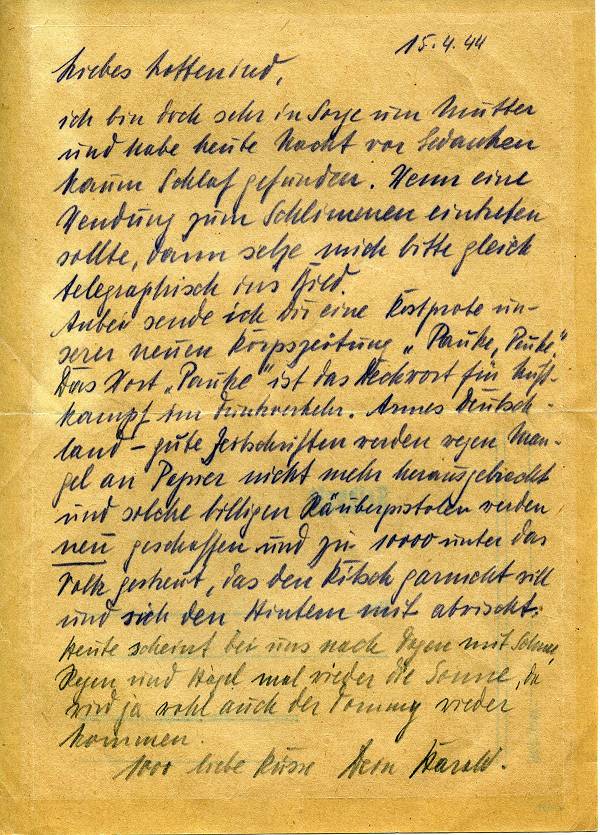 15.4.44
Liebes Lottenind,
ich bin doch sehr in Sorge um Mutter
und habe heute Nacht vor Gedanken
kaum Schlaf gefunden. Wenn eine
Wendung zum Schlimmen eintreten
sollte, dann setze mich bitte gleich
telegraphisch ins Bild.
Anbei sende ich Dir eine Kostprobe un-
serer neuen Korpszeitung „Pauke, Pauke".
Das Wort „Pauke" ist das Deckwort für Luft-
kampf im Funkverkehr. Armes Deutsch-
land – gute Zeitschriften werden wegen Man-
gel an Papier nicht mehr herausgebracht
und solche billigen Räuberpistolen werden
neu geschaffen und zu 10000 unter das
Volk gestreut, das den Kitsch garnicht will
und sich den Hintern mit abwischt.
Heute scheint bei uns nach Tagen mit Schnee,
Regen und Hagel mal wieder die Sonne, da
wird ja wohl auch der Tommy wieder
kommen.
1000 liebe Küsse Dein Harald.